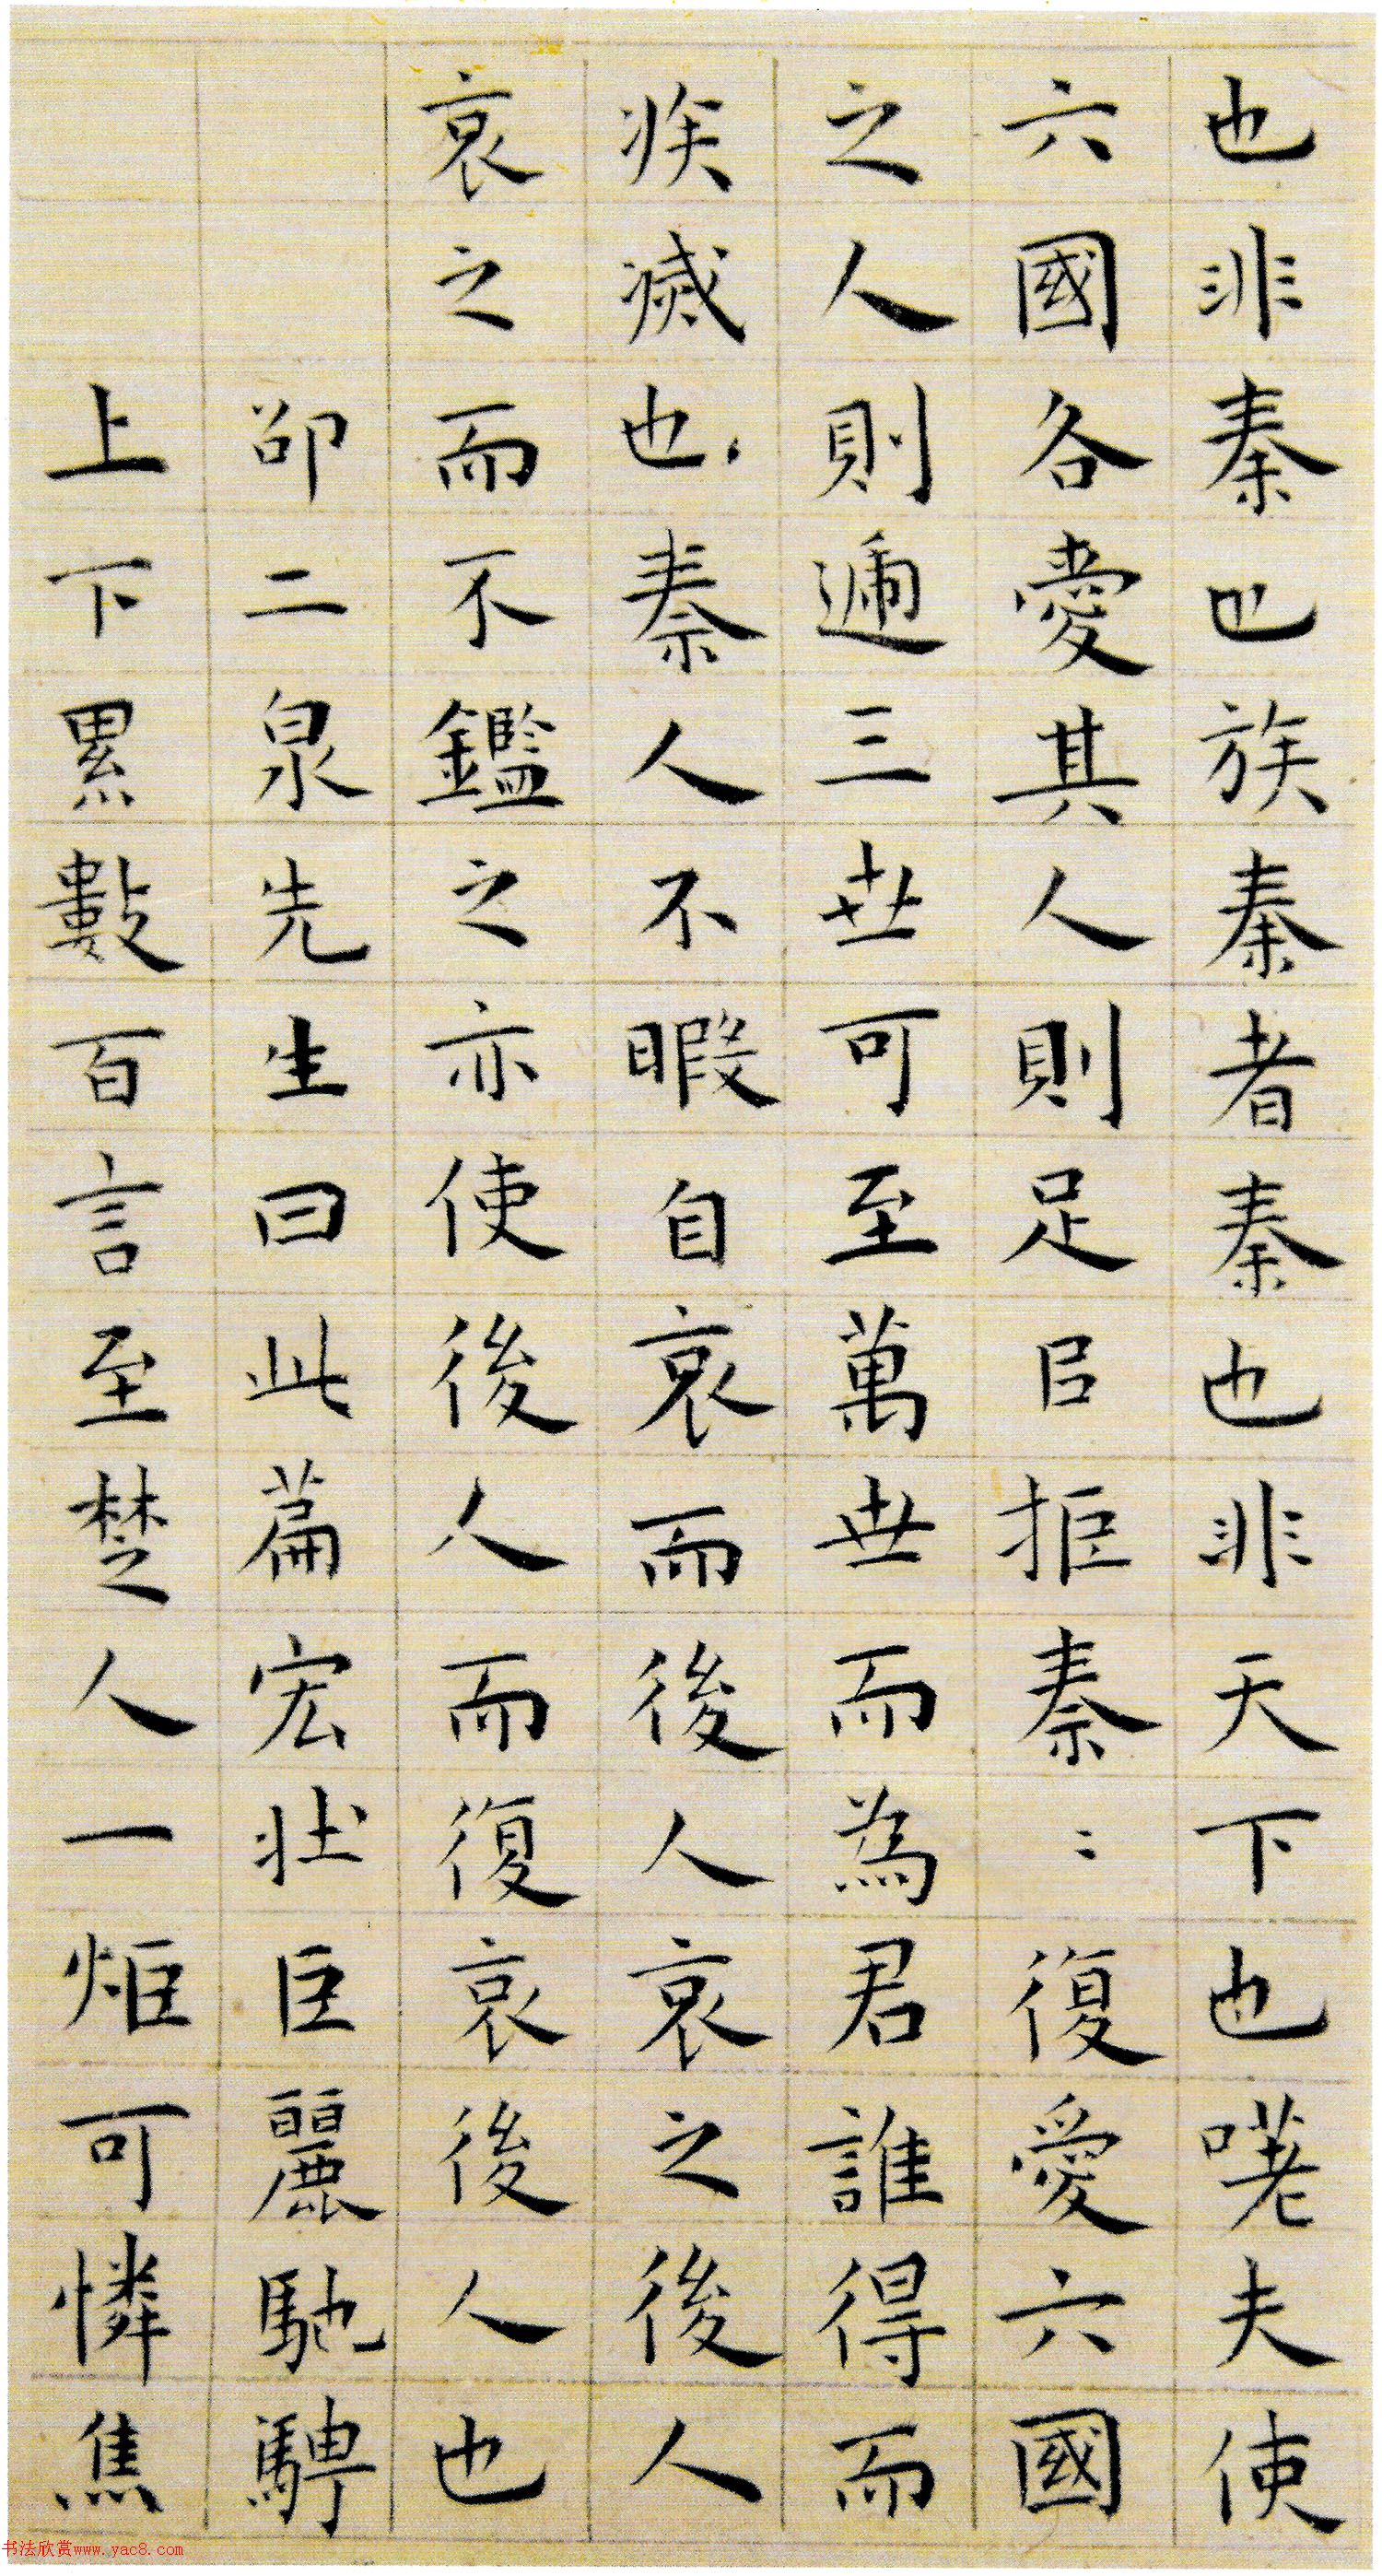 也非秦也族秦者秦也非天下也嗟夫使
六國各愛其人則足㠯拒秦〻復愛六國
之人則遞三世可至萬世而為君誰得而
族滅也、秦人不暇自哀而後人哀之後人
哀之而不鑑之亦使後人而復哀後人也
邵二泉先生曰此篇宏壯巨麗馳騁
上下累數百言至楚人一炬可憐焦
书法欣赏www.yac8.com